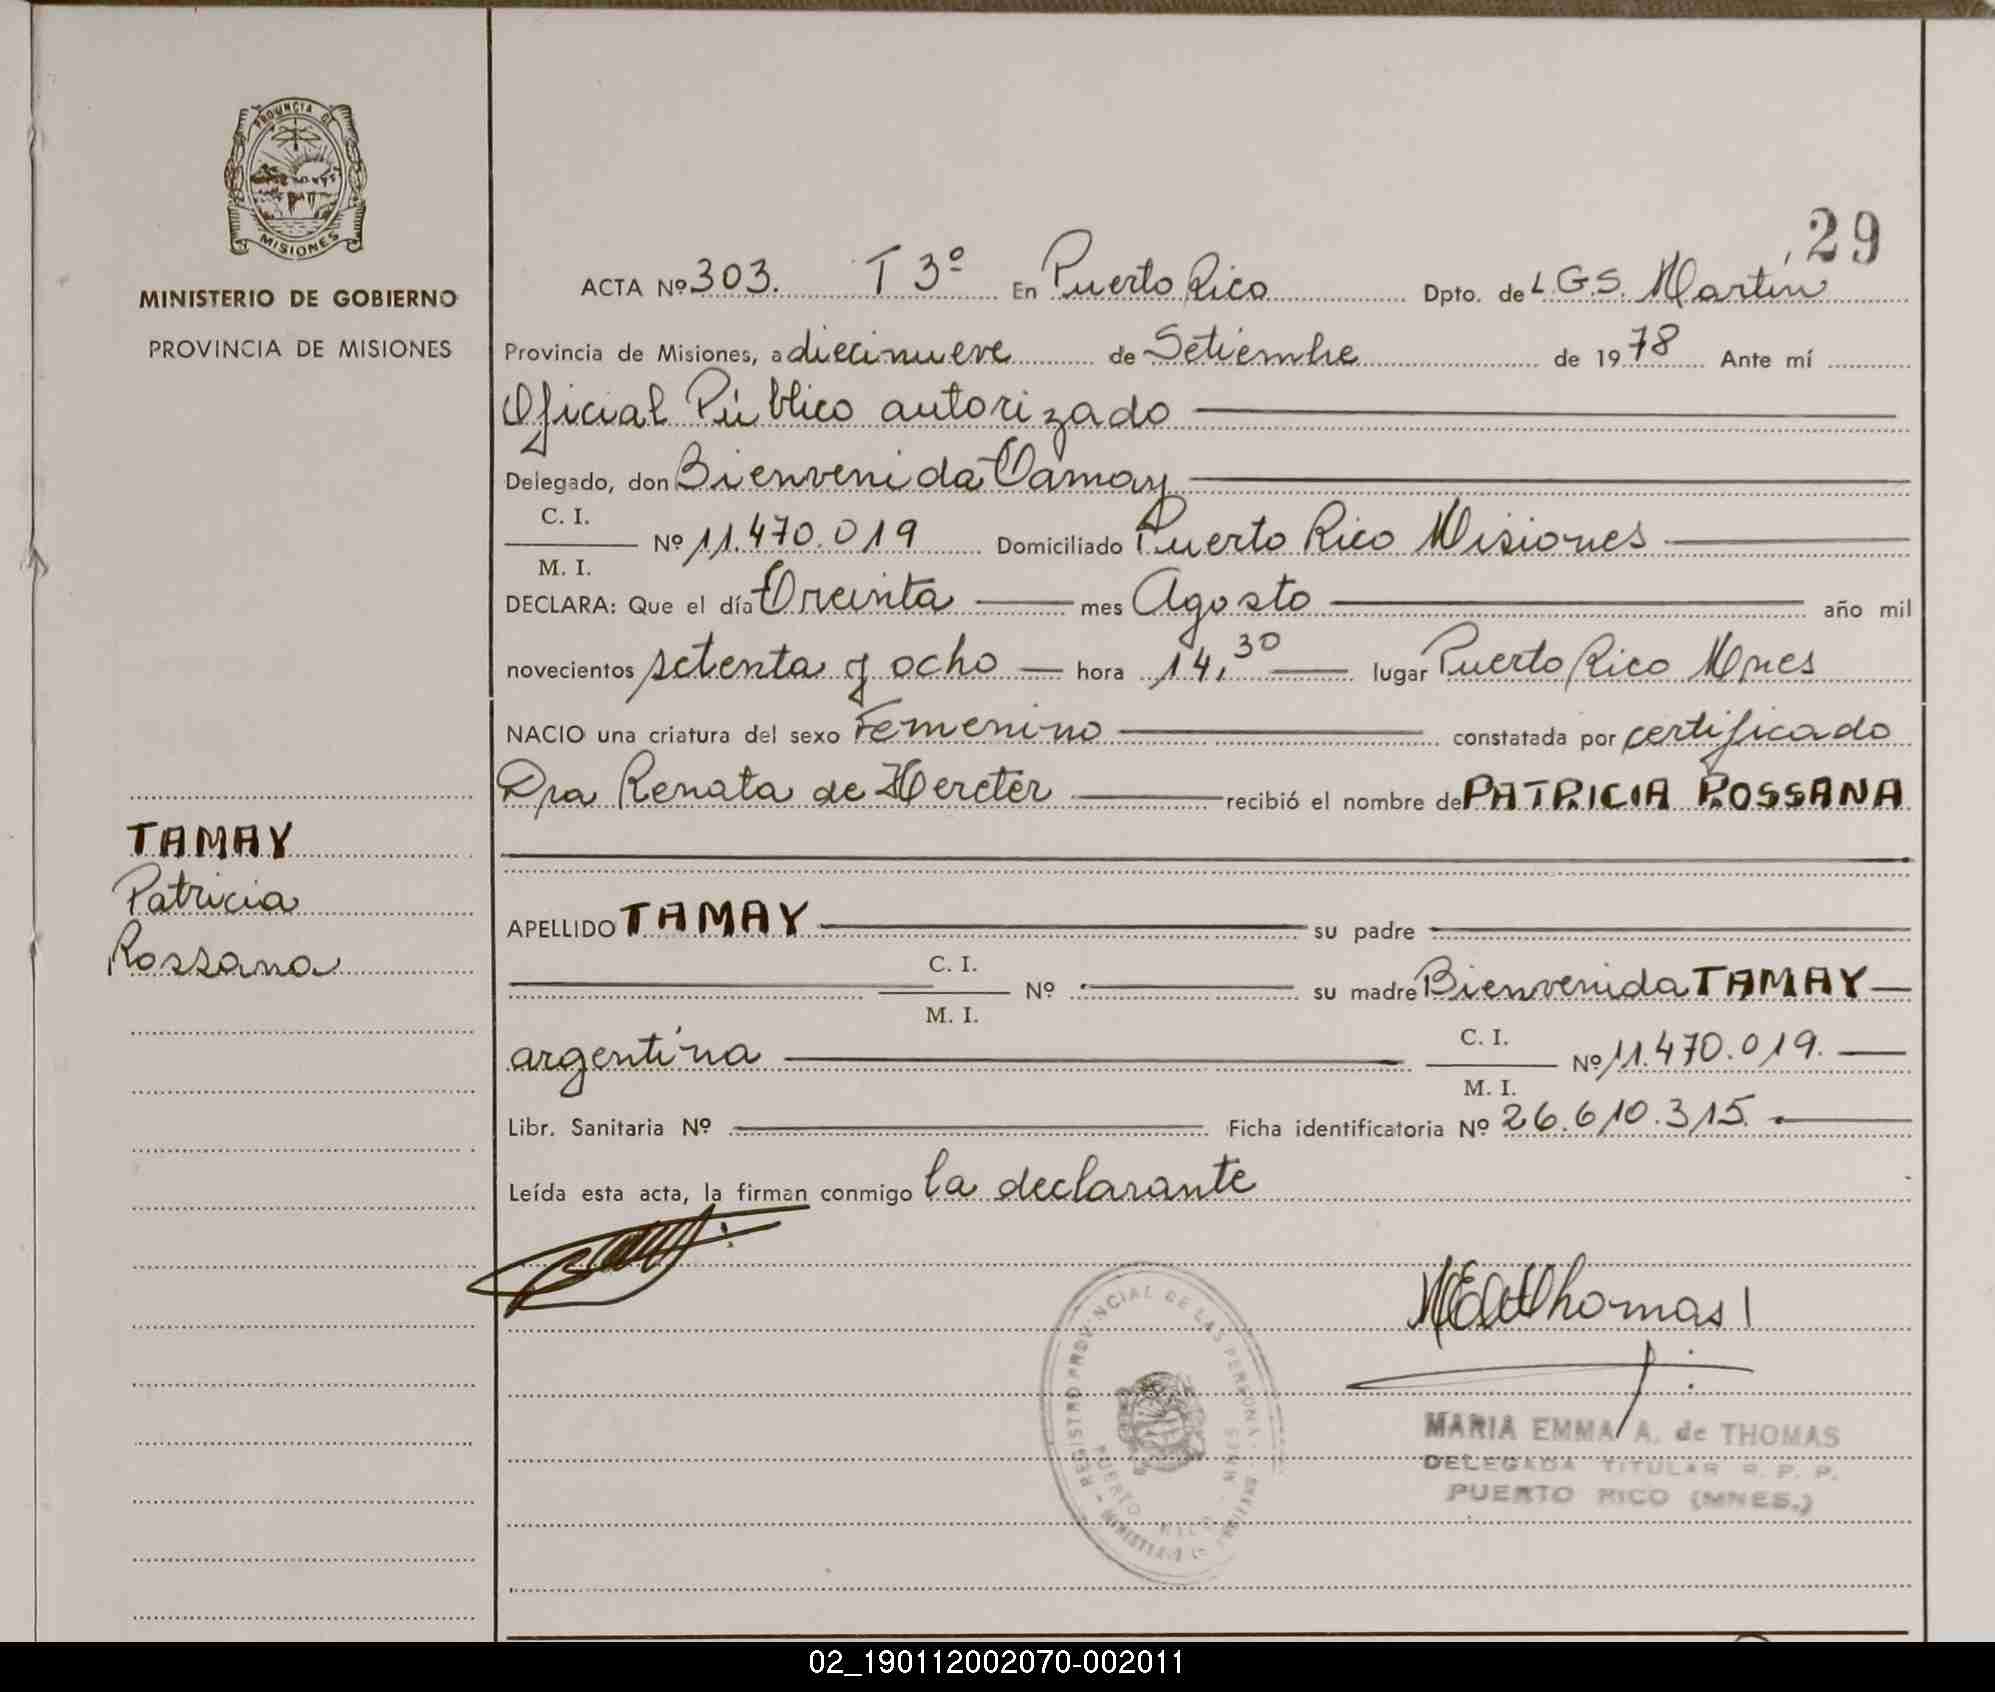 PROVINCIA DE
MISIONES
MINISTERIO DE GOBIERNO
PROVINCIA DE MISIONES
29
ACTA Nº 303. T 3º En Puerto Rico Dpto. de L.G.S. Martín
Provincia de Misiones, a diecinueve de Setiembre de 1978 Ante mí
Oficial Público autorizado
Delegado, don Bienvenida Tamay
C. I.
M. I.
Nº 11.470.019 Domiciliado Puerto Rico Misiones
DECLARA: Que el día Treinta mes Agosto año mil
novecientos setenta y ocho hora 14,30 lugar Puerto Rico Mnes
NACIO una criatura del sexo Femenino constatada por certificado
Dra Renata de Hercter recibió el nombre de PATRICIA ROSSANA
TAMAY
Patricia
Rossana
APELLIDO TAMAY su padre
C. I.
M. I.
Nº su madre Bienvenida TAMAY
argentina C. I.
M. I.
Nº 11.470.019.
Libr. Sanitaria Nº Ficha identificatoria Nº 26.610.315.
Leída esta acta, la firman conmigo la declarante
MEdeThomas
REGISTRO PROVINCIAL DE LAS PERSONAS
PUERTO RICO
MARIA EMMA A. de THOMAS
DELEGADA TITULAR R. P. P.
PUERTO RICO (MNES.)
02_190112002070-002011